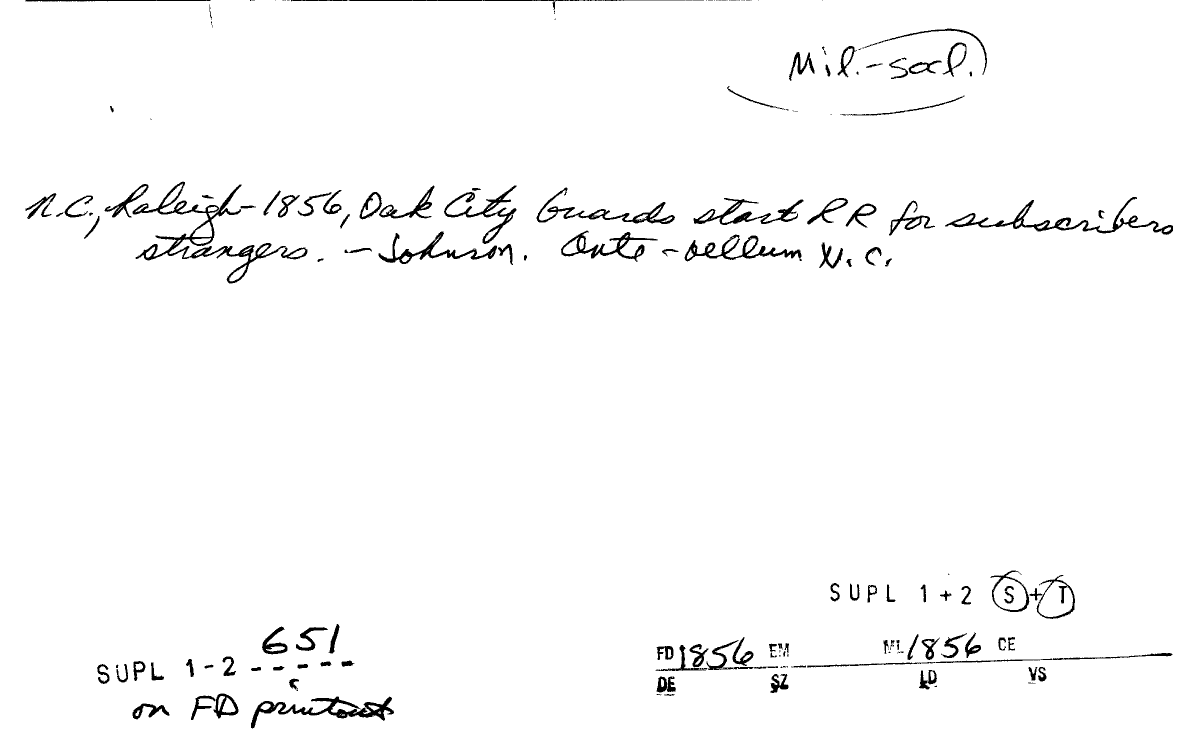 Mil.-socl.
N.C., Raleigh-1856, Oak City Guards start RR for subscribers
strangers. - Johnson. Ante-bellum N.C.
SUPL 1+2 S+T
651
SUPL 1-2 -----
on FD printout
FD 1856 EM ML 1856 CE
DE SZ LD VS